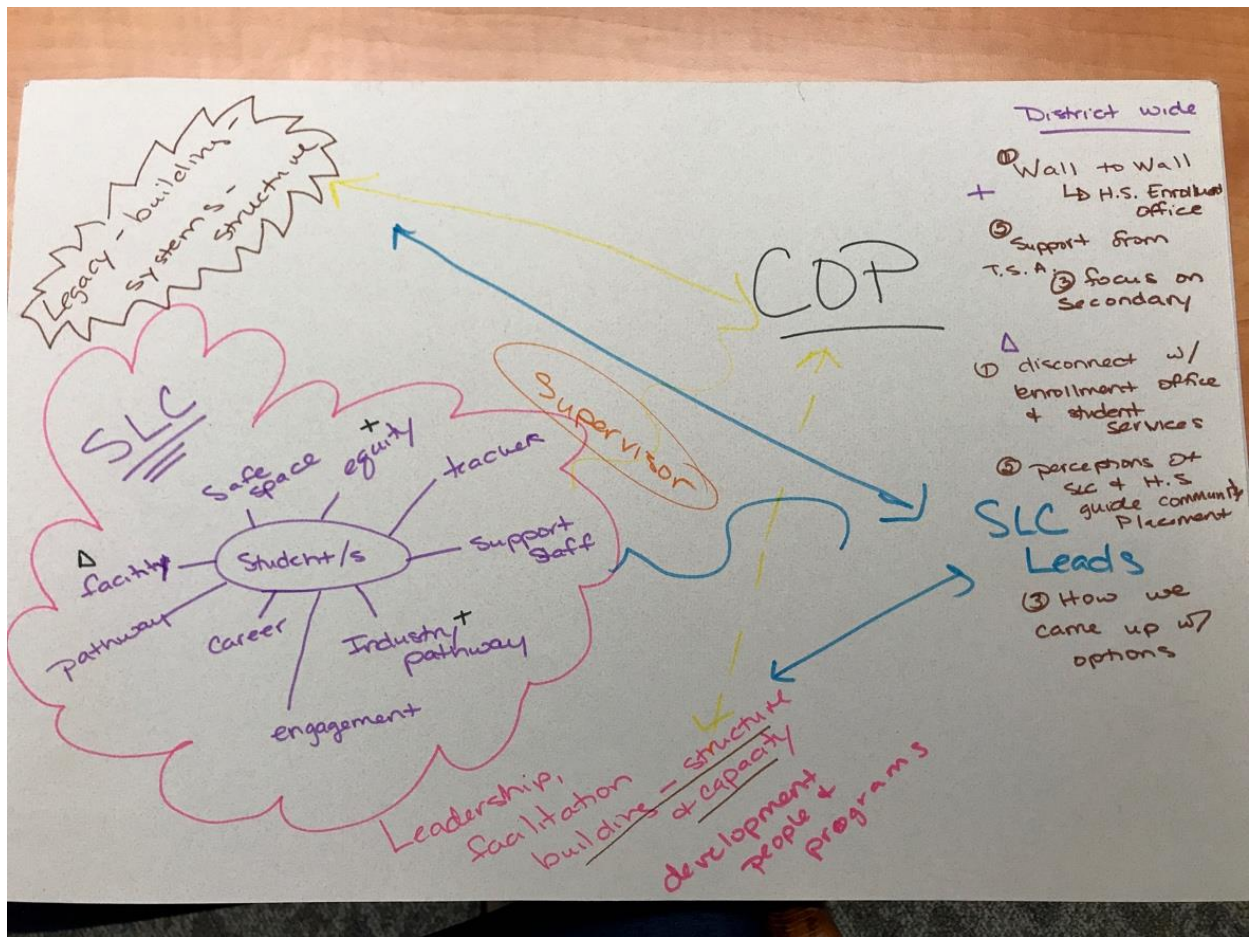 Legacy - building -
systems -
structure
SLC
Safe
space
+
equity
teacher
Student/s
Support
staff
Δ
facility
pathway
career
Industry +
pathway
engagement
Supervisor
COP
SLC
Leads
Leadership,
facilitation
building - structure
& capacity
development
people &
programs
District wide
+
① Wall to Wall
↳ H.S. Enrollment
office
② Support from
T.S.A.
③ focus on
Secondary
Δ
① disconnect w/
enrollment office
& student
services
② perceptions of
SLC & H.S
guide community
Placement
③ How we
came up w/
options